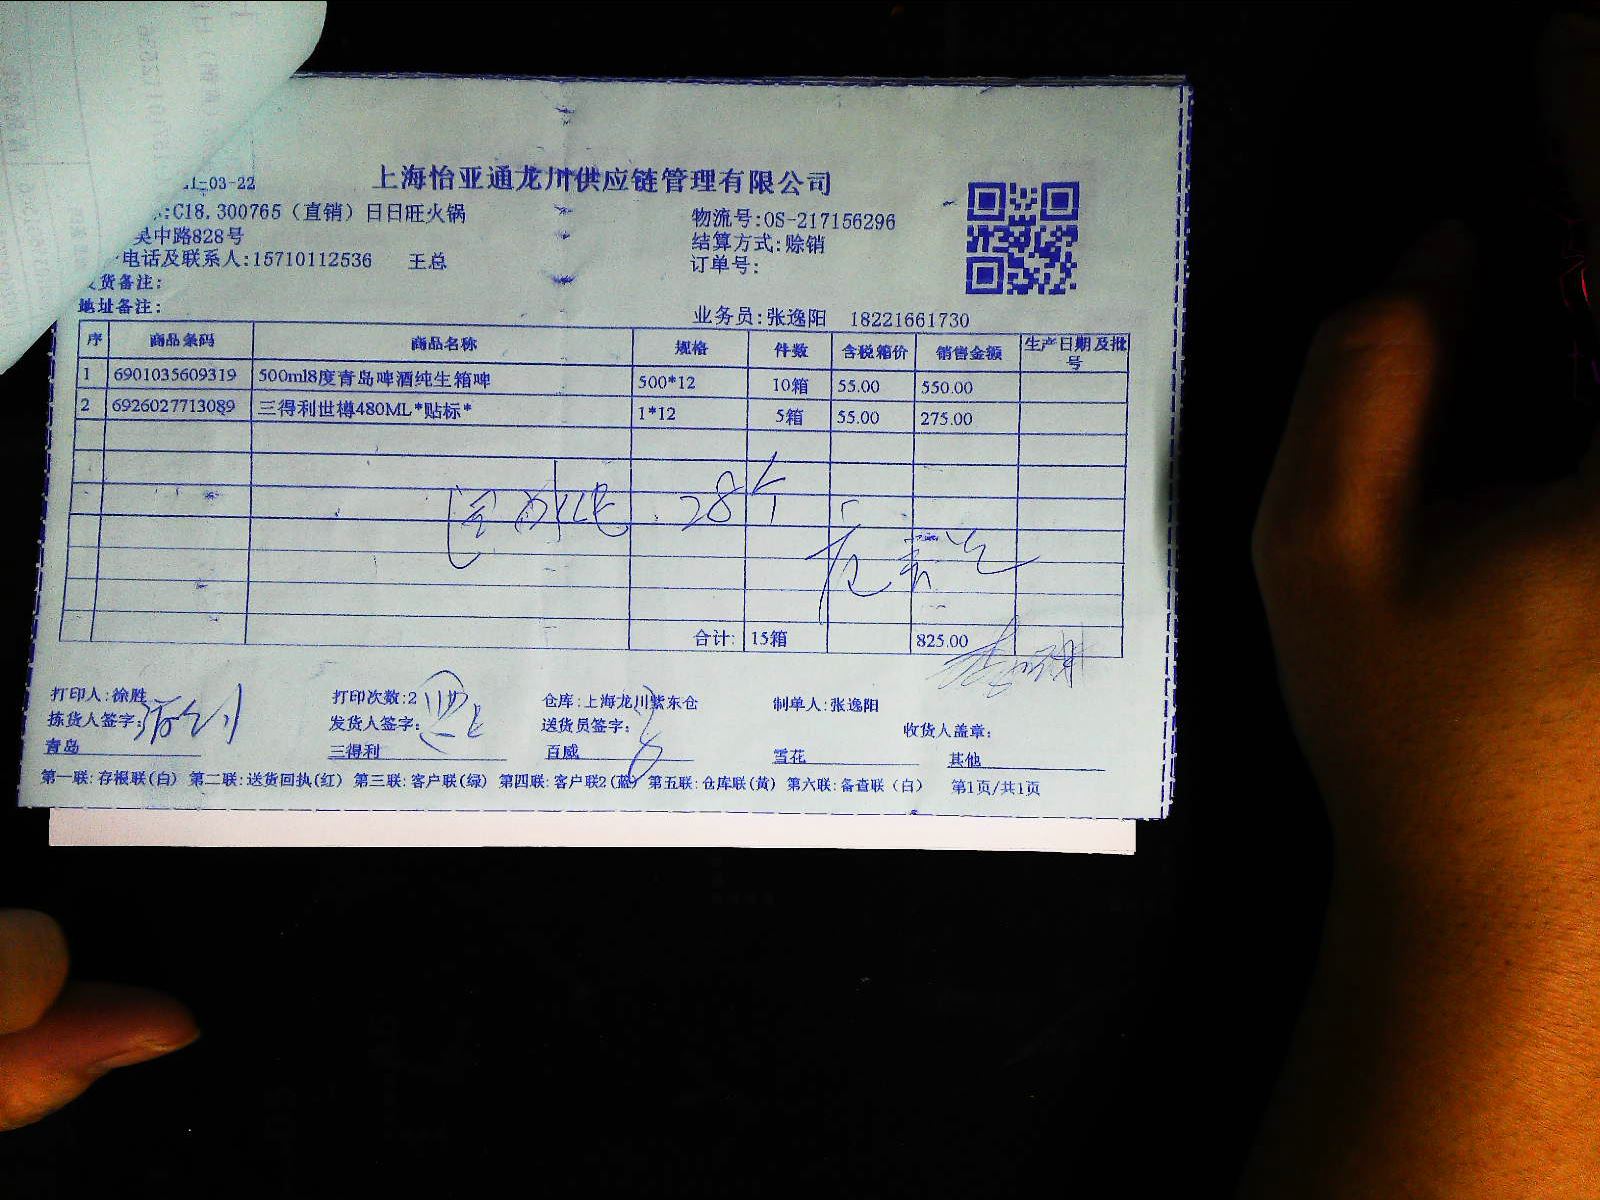 上海怡亚通龙川供应链管理有限公司
1-03-22
:C18.300765（直销）日日旺火锅
物流号:OS-217156296
吴中路828号
结算方式:赊销
电话及联系人:15710112536 王总
订单号:
货备注:
地址备注:
业务员:张逸阳 18221661730
序 商品条码 商品名称 规格 件数 含税箱价 销售金额 生产日期及批号
1 6901035609319 500ml8度青岛啤酒纯生箱啤 500*12 10箱 55.00 550.00
2 6926027713089 三得利世樽480ML*贴标* 1*12 5箱 55.00 275.00
28个
合计: 15箱 825.00
打印人:徐胜 打印次数:2 仓库:上海龙川紫东仓 制单人:张逸阳
拣货人签字: 发货人签字: 送货员签字: 收货人盖章:
青岛 三得利 百威 雪花 其他
第一联:存根联(白) 第二联:送货回执(红) 第三联:客户联(绿) 第四联:客户联2(蓝) 第五联:仓库联(黄) 第六联:备查联（白） 第1页/共1页